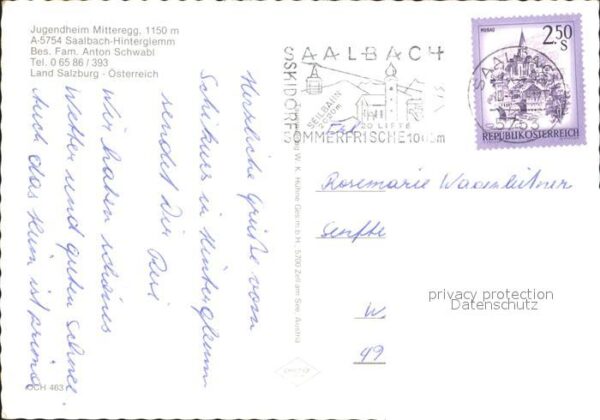 Jugendheim Mitteregg, 1150 m
A-5754 Saalbach-Hinterglemm
Bes. Fam. Anton Schwabl
Tel. 0 65 86 / 393
Land Salzburg - Österreich
SAALBACH
SKIDORF
SEILBAHN
2020m
20 LIFTE
SOMMERFRISCHE 1003m
MURAU
2.50
S
SAALBACH
5753
REPUBLIK ÖSTERREICH
Herzliche Grüße vom
Schikurs in Hinterglemm
sendet Dir
Wir haben schönes
Wetter und guten Schnee.
Auch das Heim ist prima
W. K. Hühne Ges.m.b.H., 5700 Zell am See, Austria
Rosemarie Wagenleitner
W.
49
privacy protection
Datenschutz